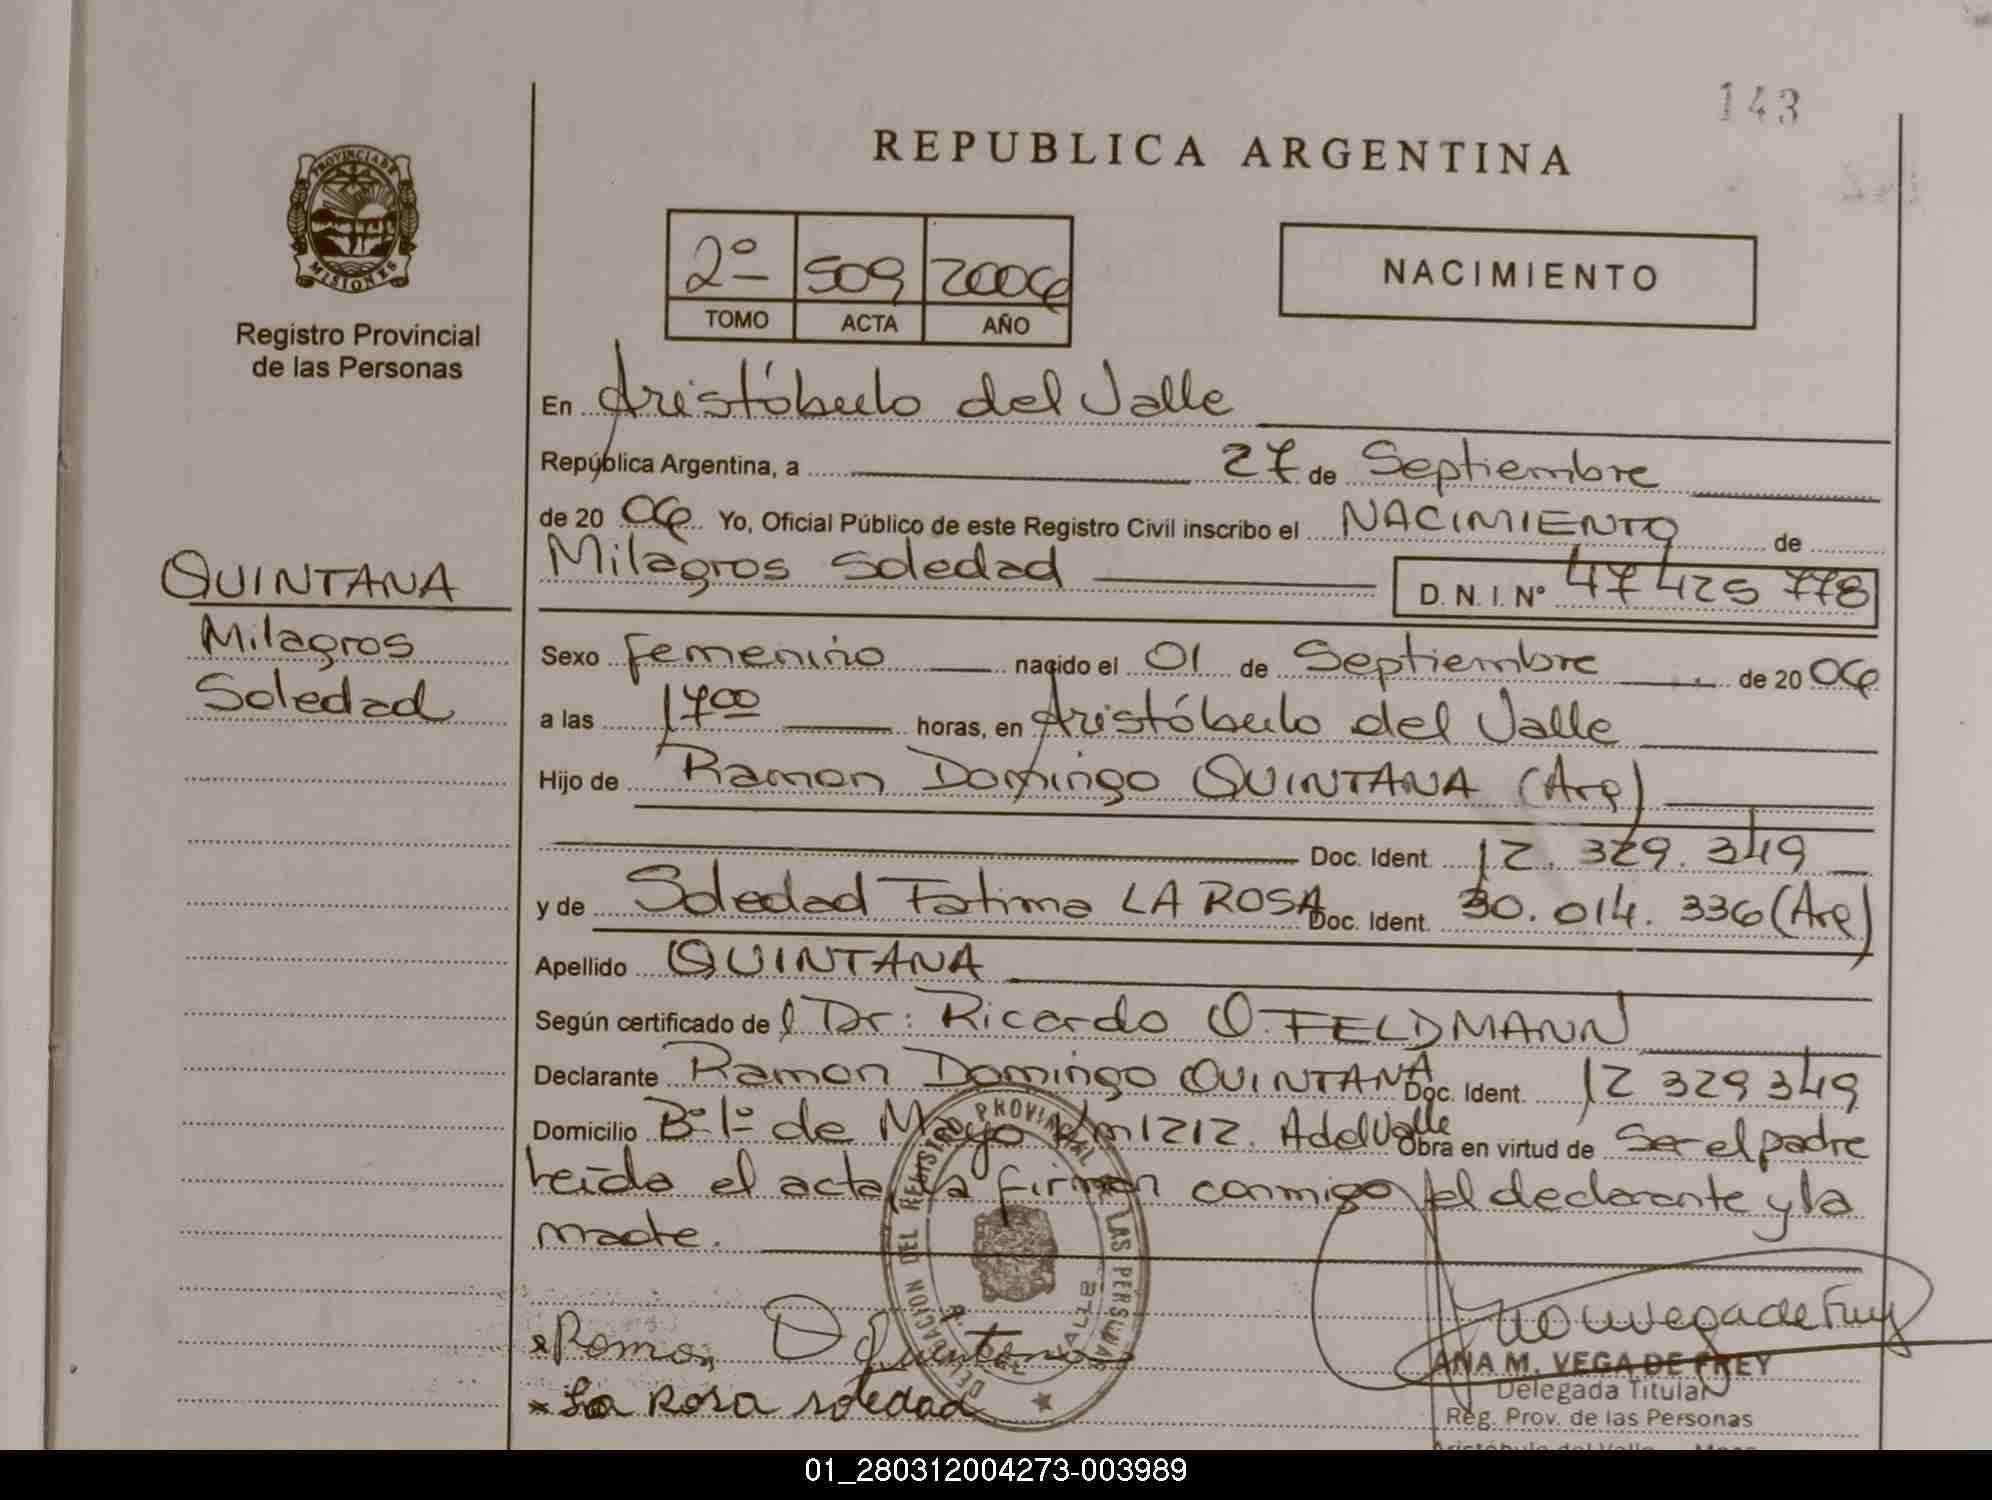 143
REPUBLICA ARGENTINA
PROVINCIA DE MISIONES
Registro Provincial
de las Personas
2º 509 2006
TOMO ACTA AÑO
NACIMIENTO
En Aristóbulo del Valle
República Argentina, a 27 de Septiembre
de 20 06 Yo, Oficial Público de este Registro Civil inscribo el NACIMIENTO de
QUINTANA
Milagros
Soledad
Milagros Soledad D. N. I. Nº 47 425 778
Sexo femenino nacido el 01 de Septiembre de 20 06
a las 17 00 horas, en Aristóbulo del Valle
Hijo de Ramon Domingo QUINTANA (Arg)
Doc. Ident. 12.329.349
y de Soledad Fatima LA ROSA Doc. Ident. 30.014.336 (Arg)
Apellido QUINTANA
Según certificado de l Dr: Ricardo O. FELDMANN
Declarante Ramon Domingo QUINTANA Doc. Ident. 12 329 349
Domicilio Bº 1º de Mayo Km 1212. A del Valle Obra en virtud de Ser el padre
Leída el acta, la firman conmigo el declarante y la
madre.
DELEGACION DEL REGISTRO PROVINCIAL DE LAS PERSONAS
A. DEL VALLE
x Ramon D Quintana
x La Rosa soledad
Ana M Vega de Frey
ANA M. VEGA DE FREY
Delegada Titular
Reg. Prov. de las Personas
Aristóbulo del Valle
01_280312004273-003989